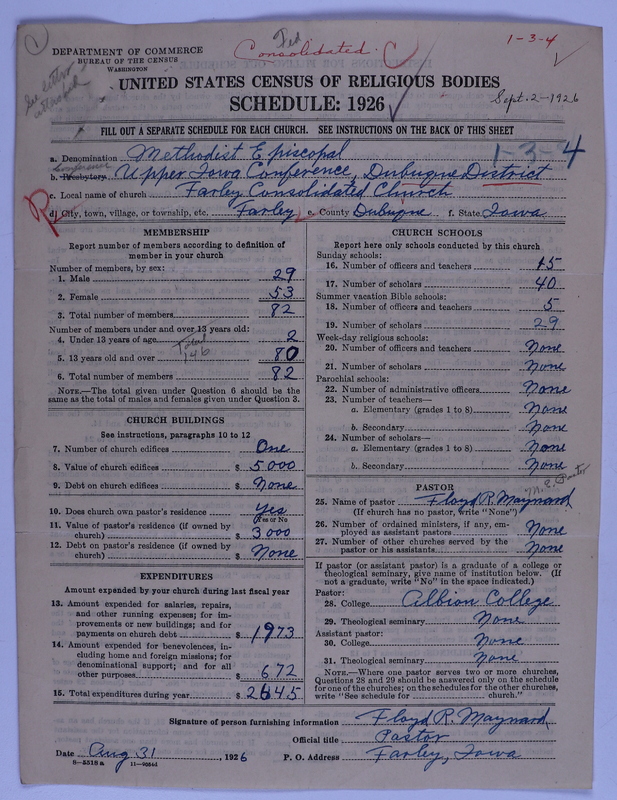 Fed
Consolidated.
1-3-4
DEPARTMENT OF COMMERCE
BUREAU OF THE CENSUS
WASHINGTON
See letter
attached
UNITED STATES CENSUS OF RELIGIOUS BODIES
SCHEDULE: 1926
Sept. 2-1926
FILL OUT A SEPARATE SCHEDULE FOR EACH CHURCH. SEE INSTRUCTIONS ON THE BACK OF THIS SHEET
1-3-4
a. Denomination Methodist Episcopal
Conference
b. Presbytery, Upper Iowa Conference, Dubuque District
c. Local name of church Farley Consolidated Church
d. City, town, village, or township, etc. Farley e. County Dubuque f. State Iowa
MEMBERSHIP
Report number of members according to definition of
member in your church
Number of members, by sex:
1. Male 29
2. Female 53
3. Total number of members 82
Number of members under and over 13 years old:
4. Under 13 years of age 2
Total
146
5. 13 years old and over 80
6. Total number of members 82
NOTE.—The total given under Question 6 should be the
same as the total of males and females given under Question 3.
CHURCH BUILDINGS
See instructions, paragraphs 10 to 12
7. Number of church edifices One
8. Value of church edifices $ 5000
9. Debt on church edifices $ None
10. Does church own pastor's residence Yes
Yes or No
11. Value of pastor's residence (if owned by
church) $ 3000
12. Debt on pastor's residence (if owned by
church) $ None
EXPENDITURES
Amount expended by your church during last fiscal year
13. Amount expended for salaries, repairs,
and other running expenses; for im-
provements or new buildings; and for
payments on church debt $ 1973
14. Amount expended for benevolences, in-
cluding home and foreign missions; for
denominational support; and for all
other purposes $ 672
15. Total expenditures during year $ 2645
CHURCH SCHOOLS
Report here only schools conducted by this church
Sunday schools:
16. Number of officers and teachers 15
17. Number of scholars 40
Summer vacation Bible schools:
18. Number of officers and teachers 5
19. Number of scholars 29
Week-day religious schools:
20. Number of officers and teachers None
21. Number of scholars None
Parochial schools:
22. Number of administrative officers None
23. Number of teachers—
a. Elementary (grades 1 to 8) None
b. Secondary None
24. Number of scholars—
a. Elementary (grades 1 to 8) None
b. Secondary None
PASTOR
M.E. Pastor
25. Name of pastor Floyd R. Maynard
(If church has no pastor, write "None")
26. Number of ordained ministers, if any, em-
ployed as assistant pastors None
27. Number of other churches served by the
pastor or his assistants None
If pastor (or assistant pastor) is a graduate of a college or
theological seminary, give name of institution below. (If
not a graduate, write "No" in the space indicated.)
Pastor:
28. College Albion College
29. Theological seminary None
Assistant pastor:
30. College None
31. Theological seminary None
NOTE.—Where one pastor serves two or more churches,
Questions 28 and 29 should be answered only on the schedule
for one of the churches; on the schedules for the other churches,
write "See schedule for church."
Signature of person furnishing information Floyd R. Maynard
Official title Pastor
Date Aug 31, 1926 P. O. Address Farley, Iowa
8—5518a